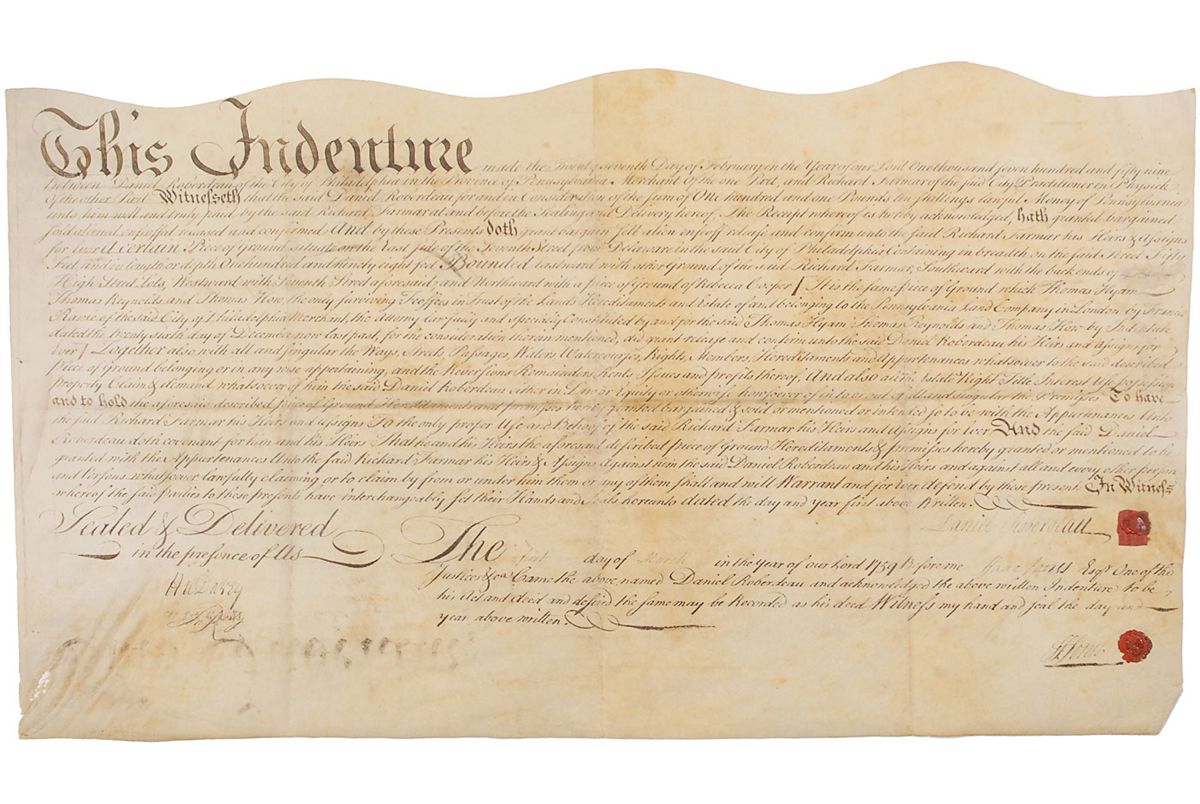 This Indenture made the Twenty seventh Day of February in the Year of our Lord One thousand seven hundred and fifty nine
Between Daniel Roberdeau of the City of Philadelphia in the Province of Pennsylvania Merchant of the one Part, and Richard Farmar of the said City Practitioner in Physick
of the other Part Witnesseth that the said Daniel Roberdeau for and in Consideration of the sum of One hundred and one Pounds ten shillings lawful Money of Pennsylvania
unto him well and truly paid by the said Richard Farmar at and before the Sealing and Delivery hereof The Receipt whereof is hereby acknowledged, hath granted bargained
sold aliened enfeoffed released and confirmed And by these Presents doth grant bargain sell alien enfeoff release and confirm unto the said Richard Farmar his Heirs & Assigns
for Ever A certain Piece of Ground situate on the East side of the Seventh Street from Delaware in the said City of Philadelphia Containing in breadth on the said Street Fifty
Feet, and in length or depth One hundred and ninety eight feet Bounded Eastward with other Ground of the said Richard Farmar, Southward with the back ends of
High Street Lots, Westward with Seventh Street aforesaid and Northward with a piece of Ground of Rebecca Cooper It is the same piece of Ground which Thomas Hyam
Thomas Reynolds and Thomas How the only surviving Feoffees in Trust of the Lands Hereditaments and Estate of and belonging to the Pensylvania Land Company in London by Francis
Rawle of the said City of Philadelphia Merchant, the Attorney Lawfully and specially Constituted by and for the said Thomas Hyam Thomas Reynolds and Thomas How by Indenture
dated the twenty sixth day of December now last past, for the consideration therein mentioned, did grant release and confirm unto the said Daniel Roberdeau his Heirs and assigns for
Ever Together also with all and singular the Ways, Streets, Passages, Waters Watercourses, Rights, Members, Hereditaments and Appurtenances whatsoever to the said described
Piece of Ground belonging or in any wise appertaining, and the Reversions Remainders Rents Issues and profits thereof, And also all the Estate Right Title Interest Use possession
property Claim & demand whatsoever of him the said Daniel Roberdeau either in Law or Equity or otherwise howsoever of in to or out of all and singular the Premisses To have
and to hold the aforesaid described piece of Ground Hereditaments and premisses hereby granted bargained & sold or mentioned or intended so to be with the Appurtenances Unto
the said Richard Farmar his Heirs and Assigns To the only proper Use and Behoof of the said Richard Farmar his Heirs and Assigns for Ever And the said Daniel
Roberdeau doth covenant for him and his Heirs That he and his Heirs the aforesaid described piece of Ground Hereditaments & premisses hereby granted or mentioned to be
granted with the Appurtenances Unto the said Richard Farmar his Heirs & Assigns against him the said Daniel Roberdeau and his Heirs and against all and every other person
and Persons whatsoever lawfully claiming or to claim by from or under him them or any of them shall and will Warrant and for Ever defend by these presents In Witness
whereof the said parties to these presents have interchangeably set their Hands and Seals hereunto dated the day and year first above Written
Daniel Roberdeau
Sealed & Delivered
in the presence of Us
The first day of March in the year of our Lord 1759 Before me Esqr. One of the
Justices &ca. Came the above named Daniel Roberdeau and acknowledged the above written Indenture to be
his Act and deed and desired the same may be Recorded as his deed Witness my hand and seal the day and
year above written.